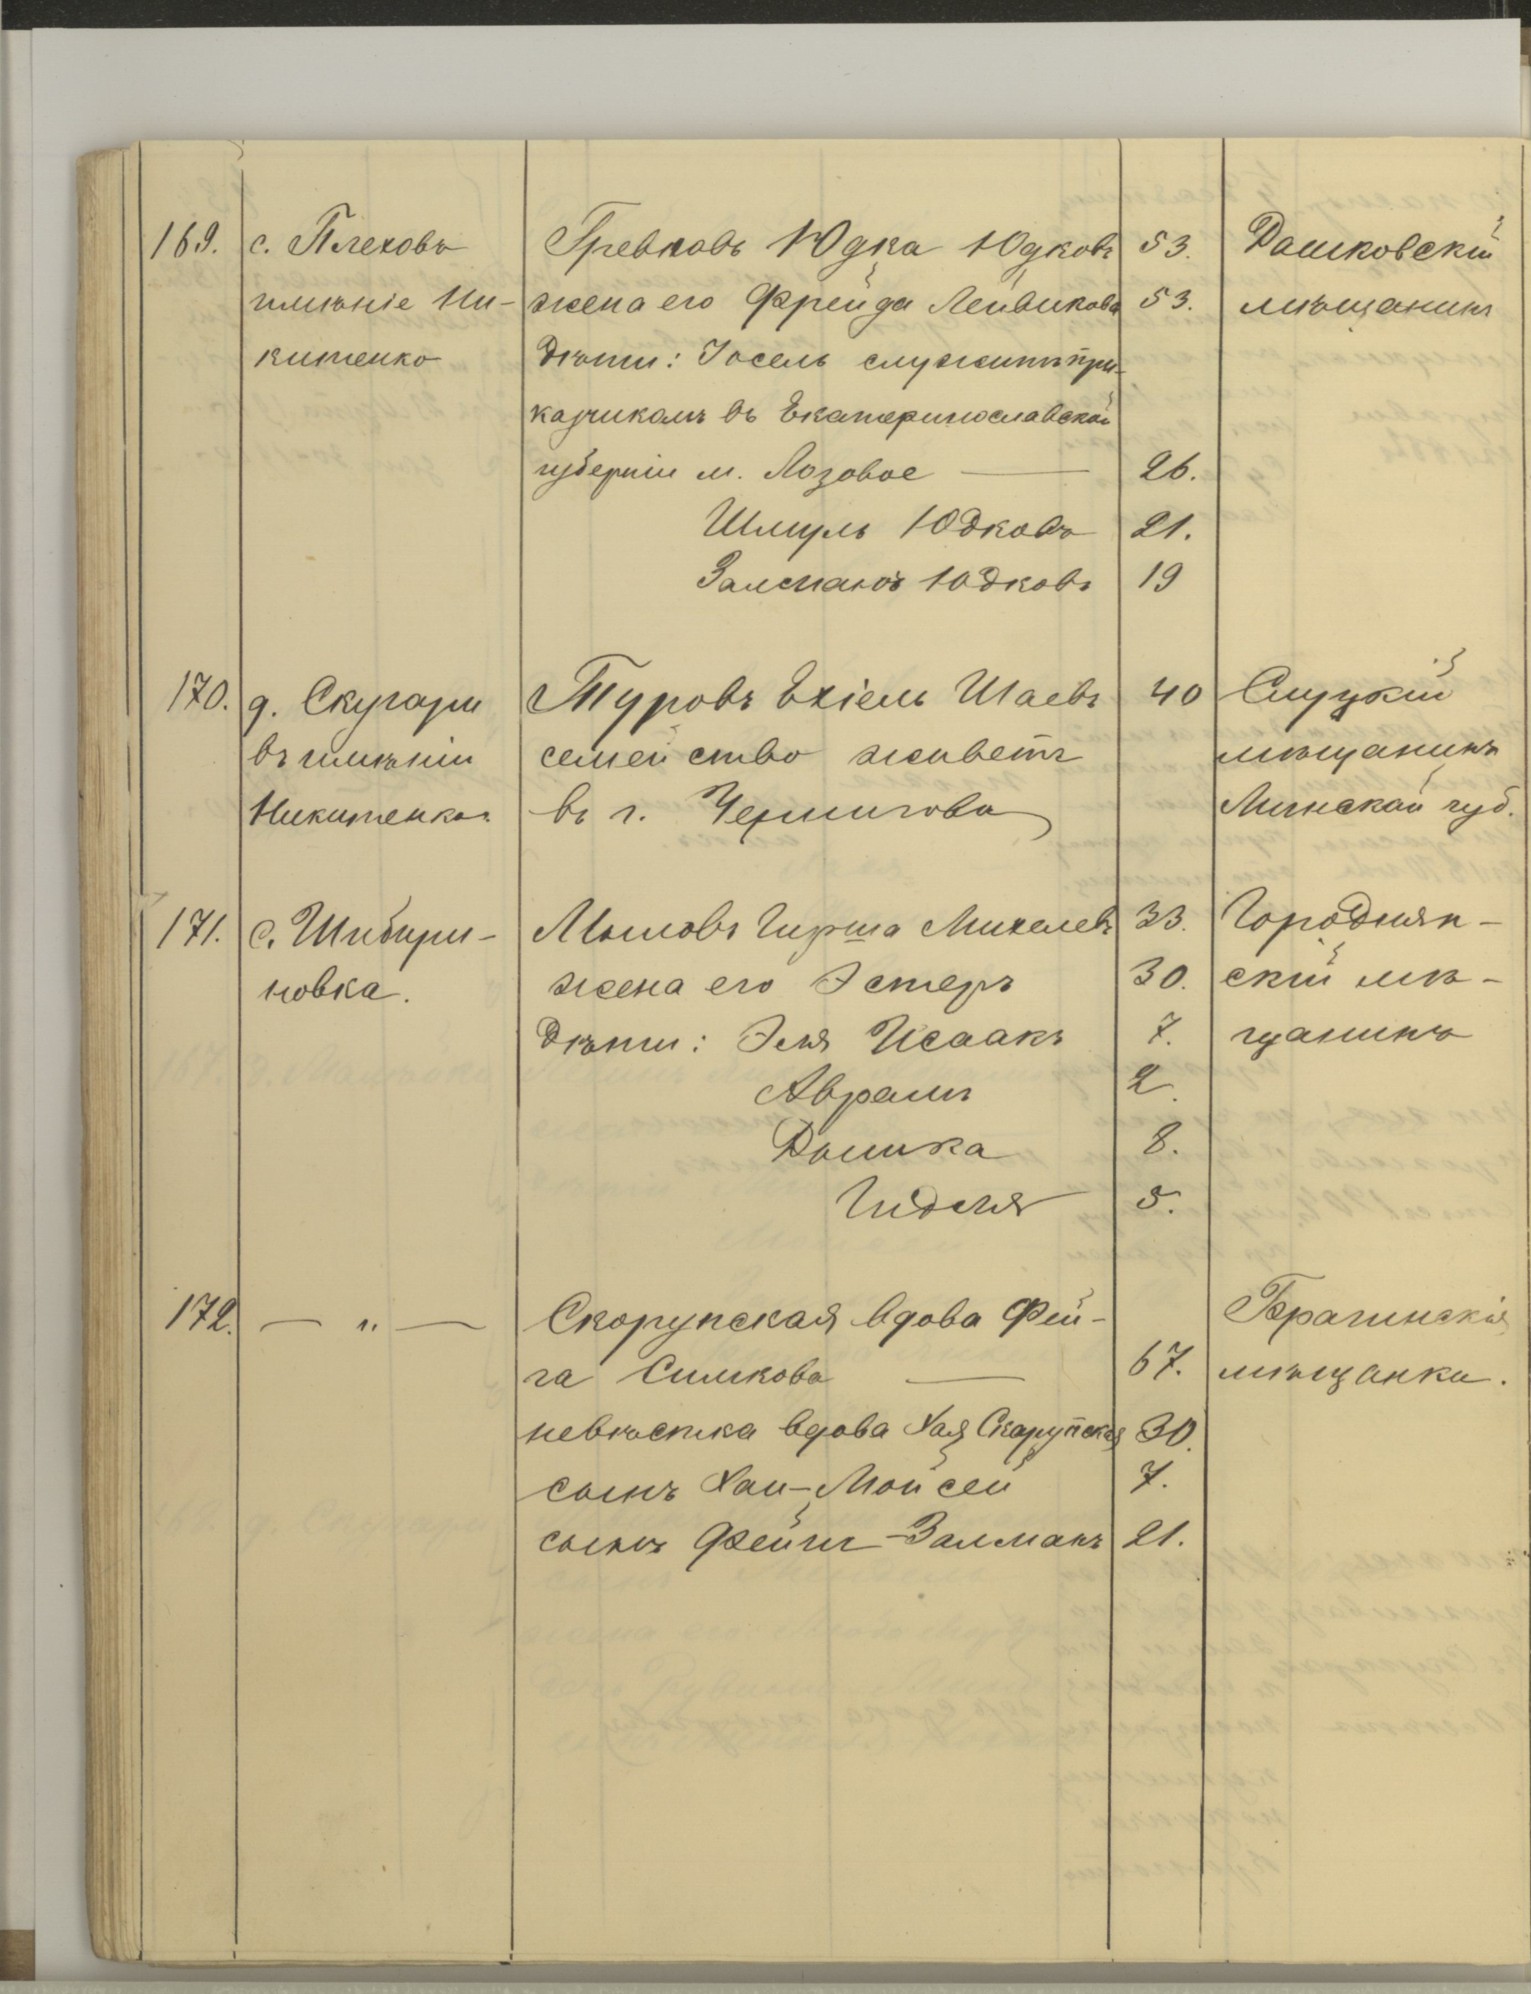 169. с. Плеховъ Гревновъ Юдка Юдковъ 53. Дашковскій
имѣніе Ни- жена его Фрейда Лейвикова 53. мѣщанинъ
китенко Дѣти: Іосель служитъ при-
казчикомъ въ Екатеринославской
губерніи м. Лозовое — 26.
Шмуль Юдковъ 21.
Залманъ Юдковъ 19
170. д. Скугари Туровъ Ехіель Шаевъ 40 Слуцкій
въ имѣніи семейство живетъ мѣщанинъ
Никитенко. въ г. Чернигова Минской губ.
171. с. Шибири- Мысловъ Гирша Михелевъ 33. Городнян-
новка. жена его Эстеръ 30. скій мѣ-
Дѣти: Эля Исаакъ 7. щанинъ
Аврамъ 2.
Дышка 8.
Гидля 5.
172. — „ — Скорупская вдова Фей- Брагинскія
га Симкова — 67. мѣщанки.
невѣстка вдова Хая Скарупская 30.
сынъ Хаи-Мойсей 7.
сынъ Фейги-Залманъ 21.